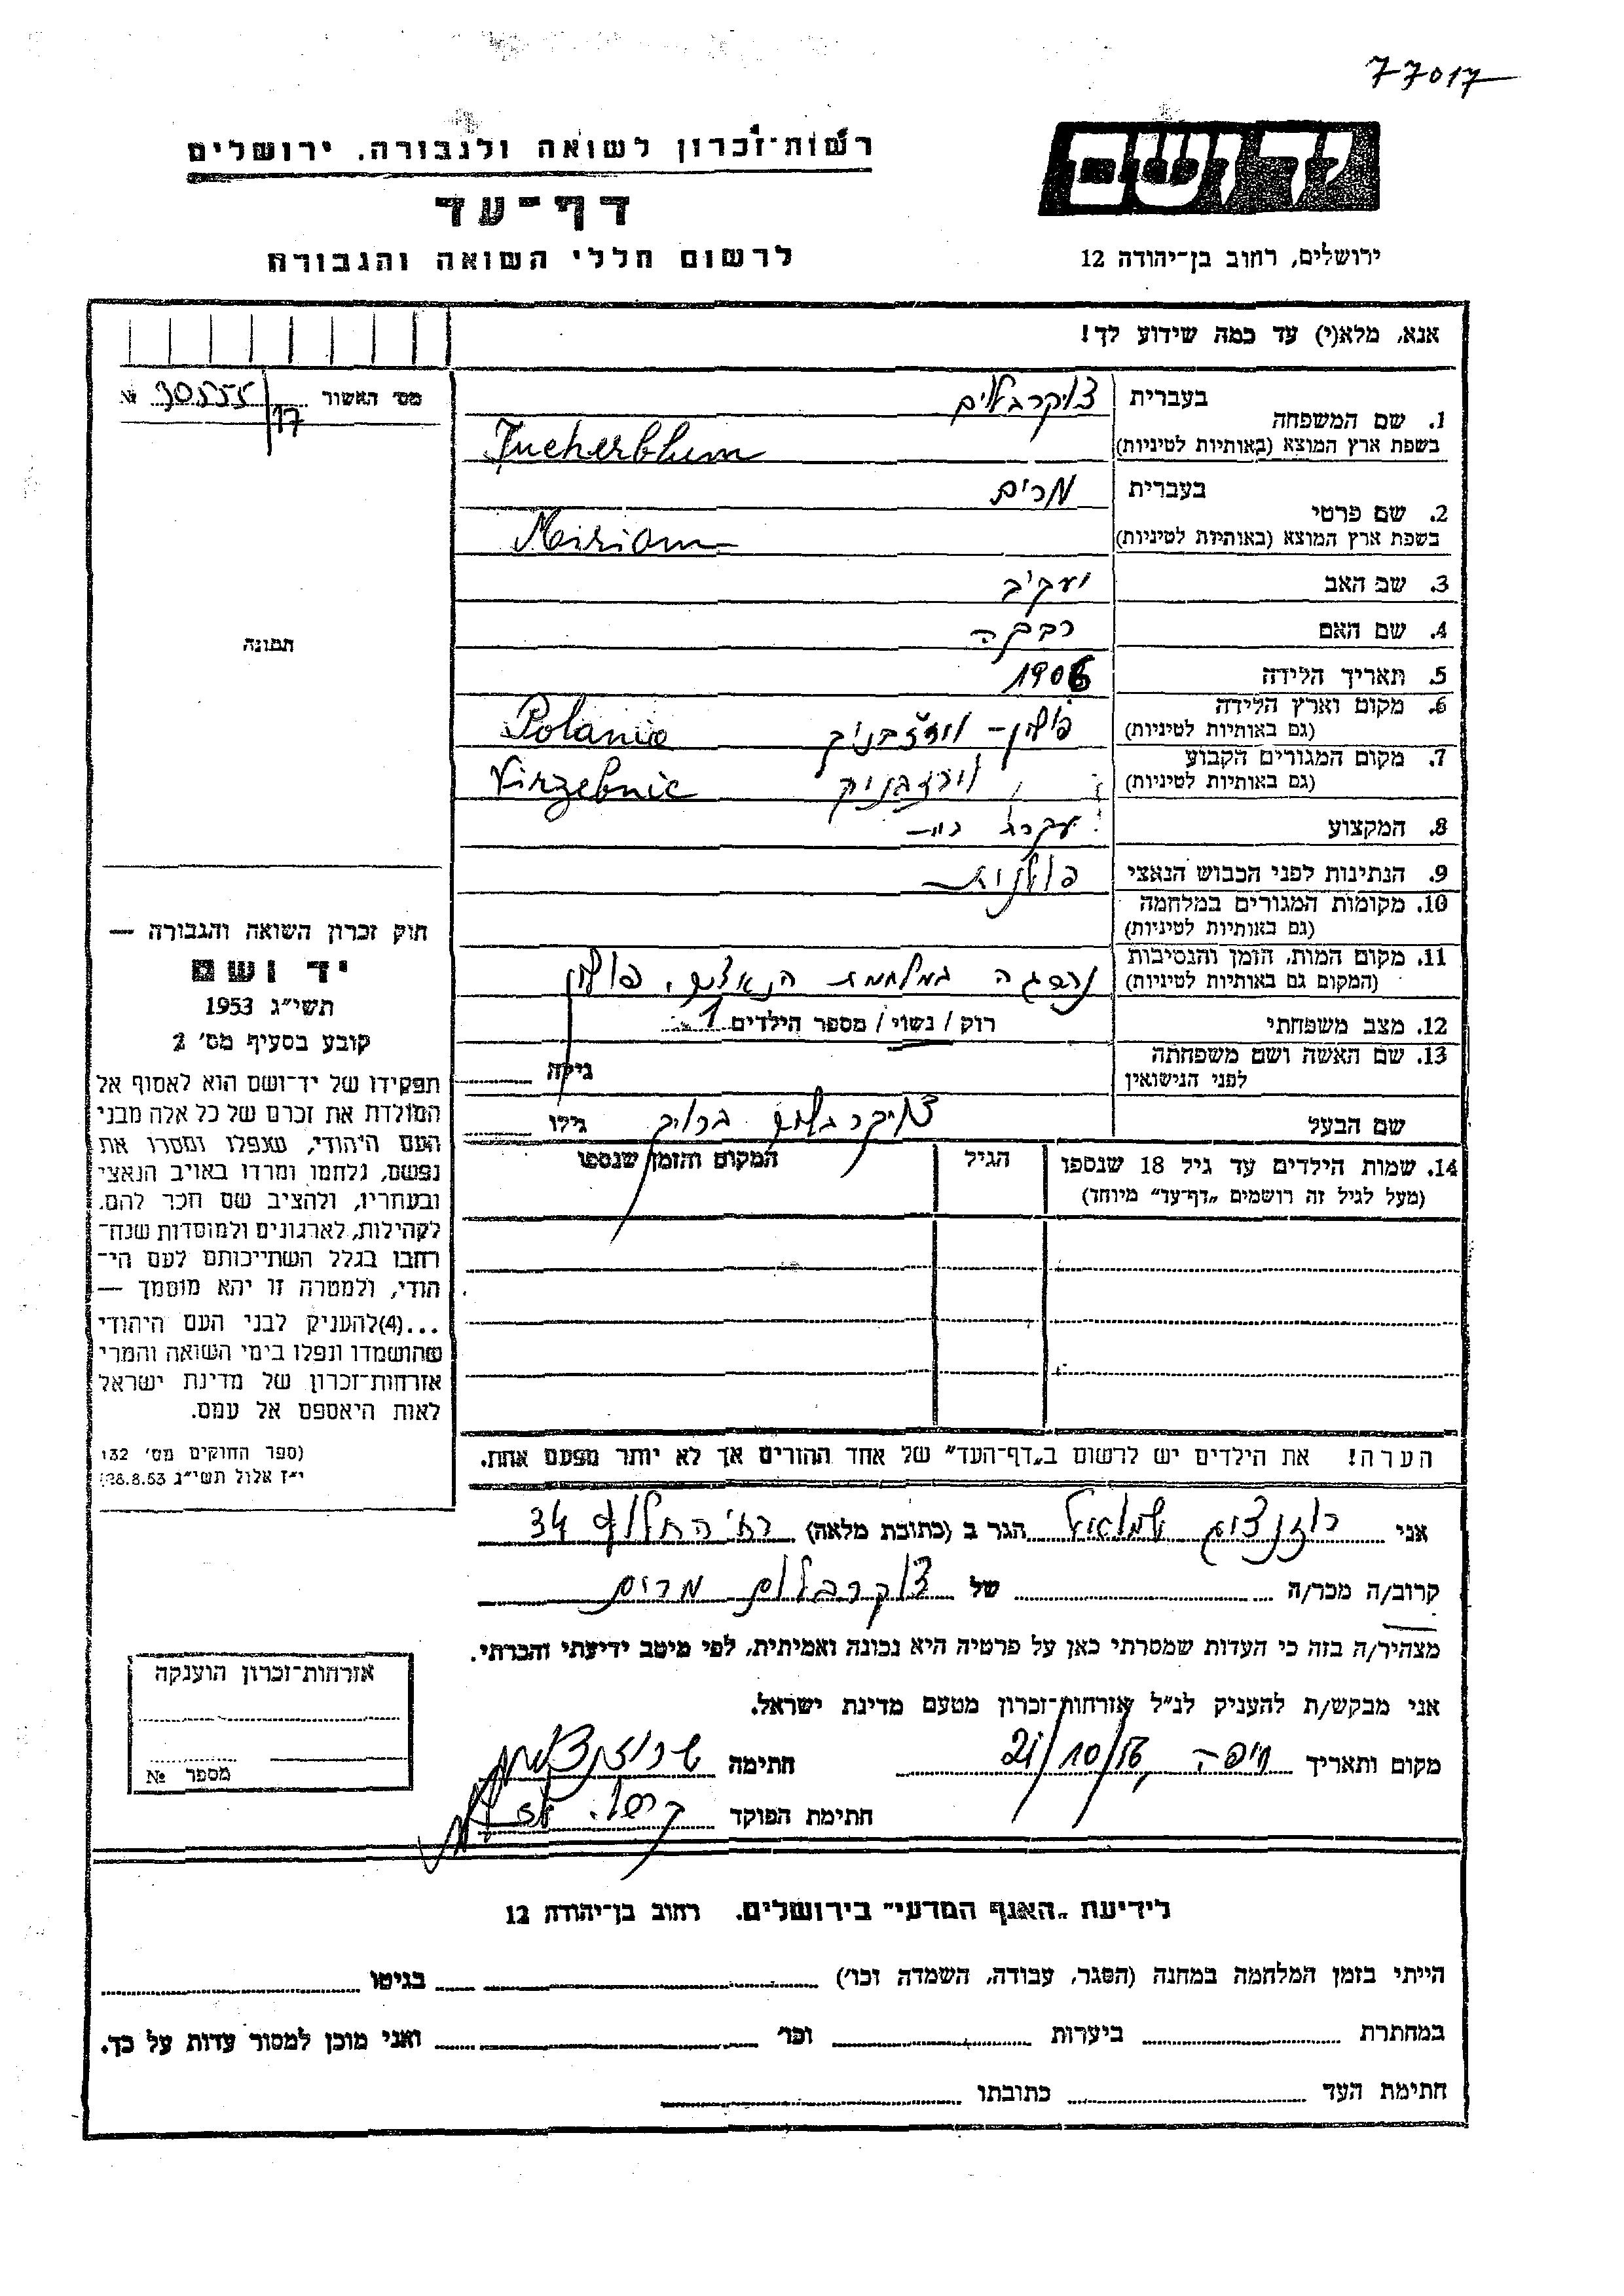 77017
יד ושם
רשות־זכרון לשואה ולגבורה, ירושלים
דף־עד
לרשום חללי השואה והגבורה
ירושלים, רחוב בן־יהודה 12
אנא, מלא(י) עד כמה שידוע לך!
מס׳ האשור 30555/17 №
1. שם המשפחה
בעברית צוקרבלום
בשפת ארץ המוצא (באותיות לטיניות) Zucherblum
2. שם פרטי
בעברית מרים
בשפת ארץ המוצא (באותיות לטיניות) Miriam
3. שם האב יעקב
4. שם האם רבקה
5. תאריך הלידה 1906
6. מקום וארץ הלידה
(גם באותיות לטיניות) פולין – וירזבניק Polania
7. מקום המגורים הקבוע
(גם באותיות לטיניות) וירזבניק Virzebnic
8. המקצוע עקרת בית
9. הנתינות לפני הכבוש הנאצי פולנית
10. מקומות המגורים במלחמה
(גם באותיות לטיניות)
11. מקום המות, הזמן והנסיבות
(המקום גם באותיות לטיניות) נספגה במלחמת הנאצים, פולין
12. מצב משפחתי רוק / נשוי / מספר הילדים 1
13. שם האשה ושם משפחתה
לפני הנישואין גילה
שם הבעל צוקרבלום ברוך גילו
14. שמות הילדים עד גיל 18 שנספו
(מעל לגיל זה רושמים „דף־עד״ מיוחד)
הגיל
המקום והזמן שנספו
תמונה
חוק זכרון השואה והגבורה —
יד ושם
תשי״ג 1953
קובע בסעיף מס׳ 2
תפקידו של יד־ושם הוא לאסוף אל
המולדת את זכרם של כל אלה מבני
העם היהודי, שנפלו ומסרו את
נפשם, נלחמו ומרדו באויב הנאצי
ובעוזריו, ולהציב שם וזכר להם,
לקהילות, לארגונים ולמוסדות שנח־
רבו בגלל השתייכותם לעם הי־
הודי, ולמטרה זו יהא מוסמך —
...(4)להעניק לבני העם היהודי
שהושמדו ונפלו בימי השואה והמרי
אזרחות־זכרון של מדינת ישראל
לאות היאספם אל עמם.
(ספר החוקים מס׳ 132
י״ז אלול תשי״ג 28.8.53)
הערה! את הילדים יש לרשום ב„דף־העד״ של אחד ההורים אך לא יותר מפעם אחת.
אני רוזנצוויג שמואל הגר ב (כתובת מלאה) רח׳ החלוץ 34
קרוב/ה מכר/ה של צוקרבלום מרים
מצהיר/ה בזה כי העדות שמסרתי כאן על פרטיה היא נכונה ואמיתית, לפי מיטב ידיעתי והכרתי.
אני מבקש/ת להעניק לנ״ל אזרחות־זכרון מטעם מדינת ישראל.
מקום ותאריך חיפה 21/10/56 חתימה
חתימת הפוקד
אזרחות־זכרון הוענקה
מספר №
לידיעת „האגף המדעי״ בירושלים. רחוב בן־יהודה 12
הייתי בזמן המלחמה במחנה (הסגר, עבודה, השמדה וכו׳) בגיטו
במחתרת ביערות וכו׳ ואני מוכן למסור עדות על כך.
חתימת העד כתובתו